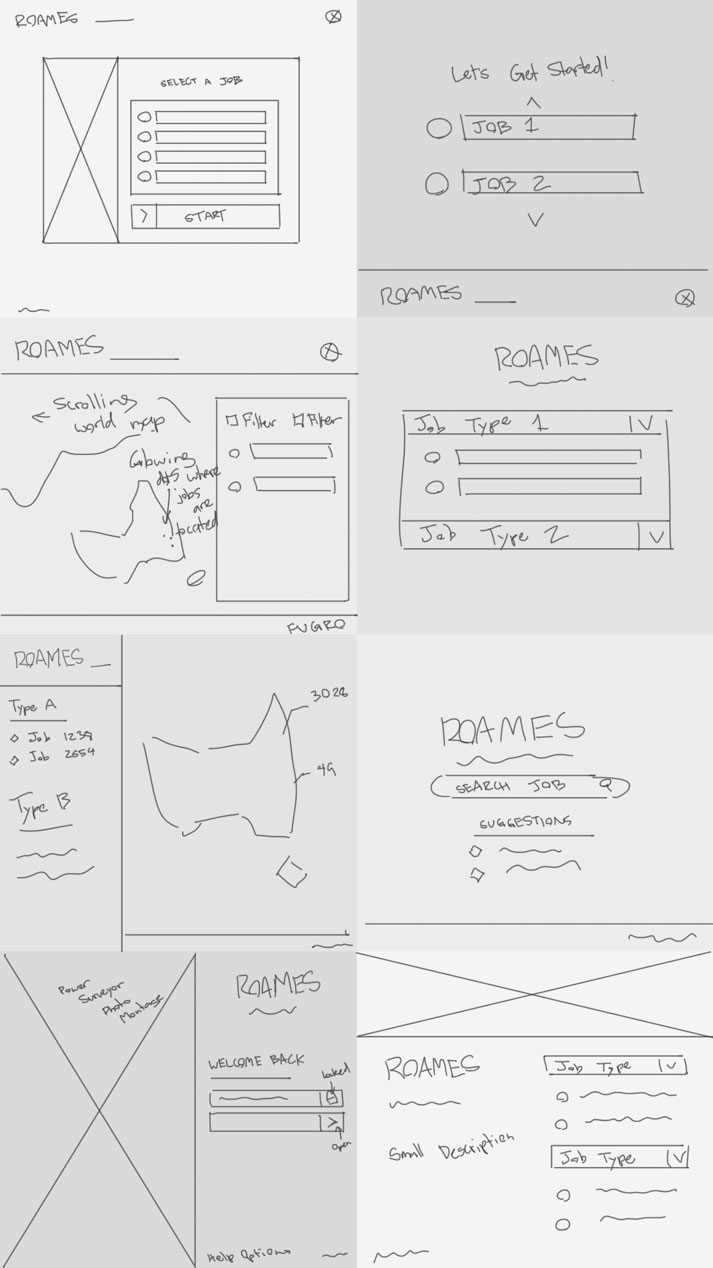 ROAMES
SELECT A JOB
START
Let's Get Started!
JOB 1
JOB 2
ROAMES
ROAMES
Scrolling
world map
Filter
Filter
Glowing
dots where
jobs
are
located
FUGRO
ROAMES
Job Type 1
Job Type 2
ROAMES
Type A
Job 1239
Job 2654
Type B
3028
49
ROAMES
SEARCH JOB
SUGGESTIONS
Power
Surveyor
Photo
Montage
ROAMES
WELCOME BACK
Locked
Open
Help Options
ROAMES
Small Description
Job Type
Job Type